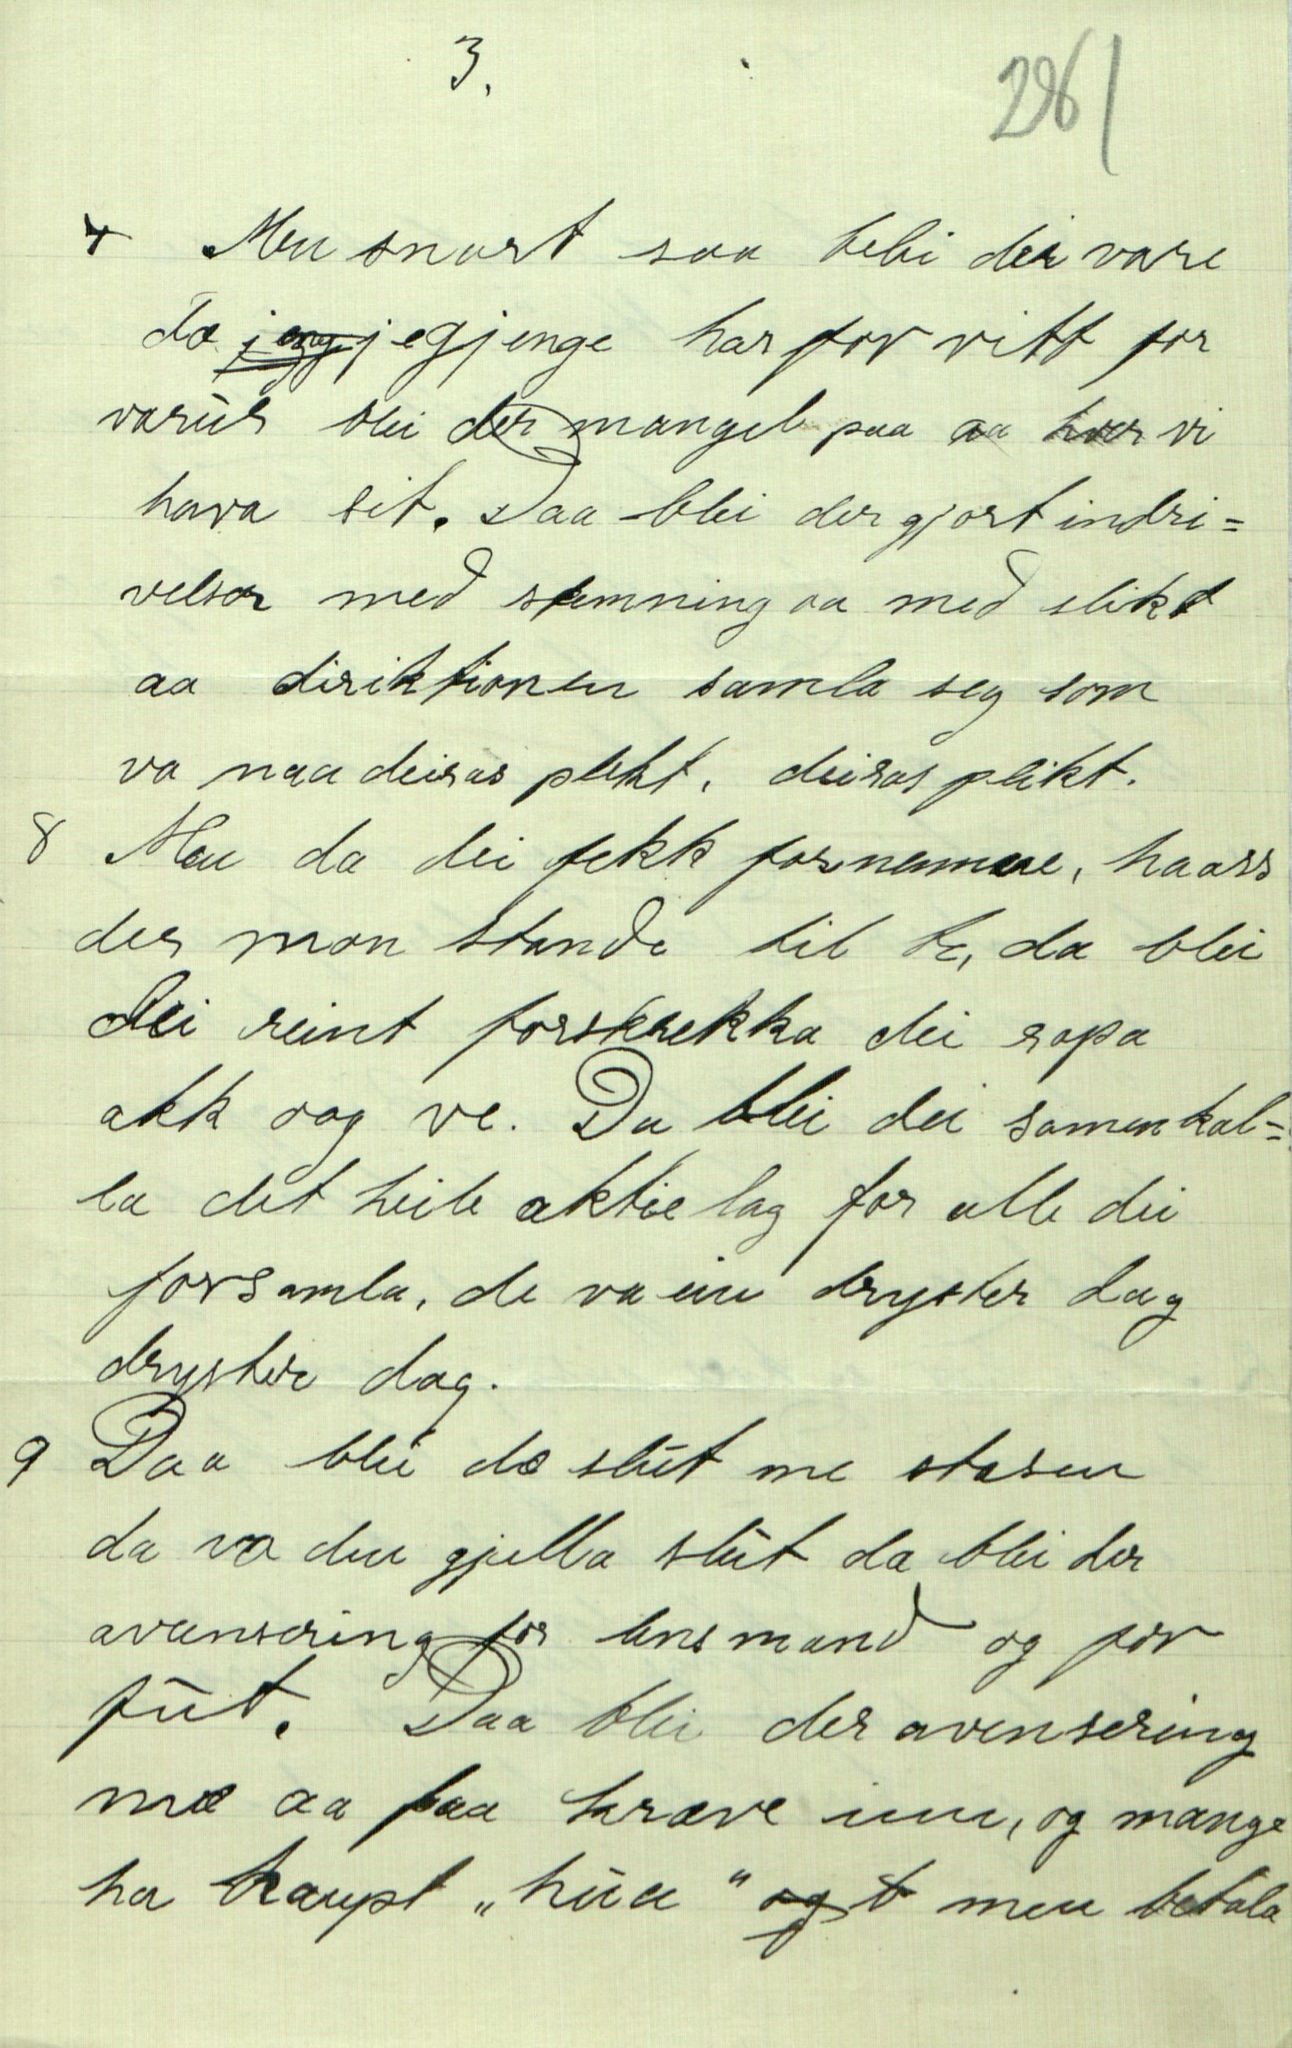 3.
261
7 Men snart saa blei dei vare
dæ jeng jegjenge har for vitt for
varur blei der mangel paa aa hver vi
hava sit. Daa blei der gjort indri=
velser med stemning aa med slikt
aa diriktionen samla seg som
va naa deiras plikt, deiras plikt.
8 Men da dei fekk fornemme, haass
der mon stande til to, da blei
dei reint forskrekka dei ropa
akk aag ve. Da blei dei samenkal=
la det heile aktielag for alle dei
forsamla, de va ein dryster dag
dryster dag.
9 Daa blei dæ slut me stasen
da va den gjella slut da blei der
avensering for lensmand og for
fut. Daa blei der avensering
mæ aa faa kræve inn, og mange
ha kaupt „hua" og t men betala